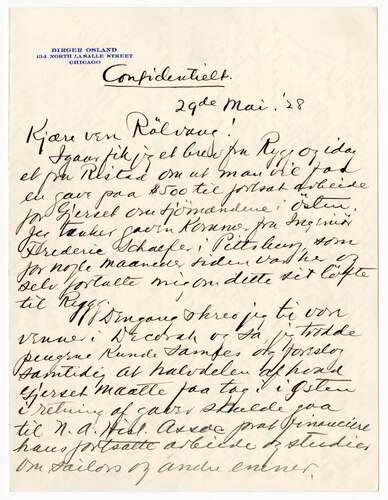 BIRGER OSLAND
134 NORTH LA SALLE STREET
CHICAGO
Confidentielt.
29de Mai. '28
Kjære ven Rölvaag!
Igaar fik jeg et brev fra Rygg og idag
et fra Ristad om at man vil faa
en gave paa $500 til fortsat arbeide
for Gjerset om Sjömændene i Östen.
Jeg tænker gaven kommer fra Ingeniör
Frederic Schaefer i Pittsburg, som
for nogle maaneder siden var her og
selv fortalte mig om dette sit löfte
til Rygg.
Dengang skrev jeg til vore
venner i Decorah og sa jeg trodde
pengene kunde samles og foreslog
samtidig at halvdelen af hvad
Gjerset maatte faa tag i i Östen
i retning af gaver skulde gaa
til N. A. Hist. Assoc for at financiere
hans fortsatte arbeide og studier
om sailors og andre emner.